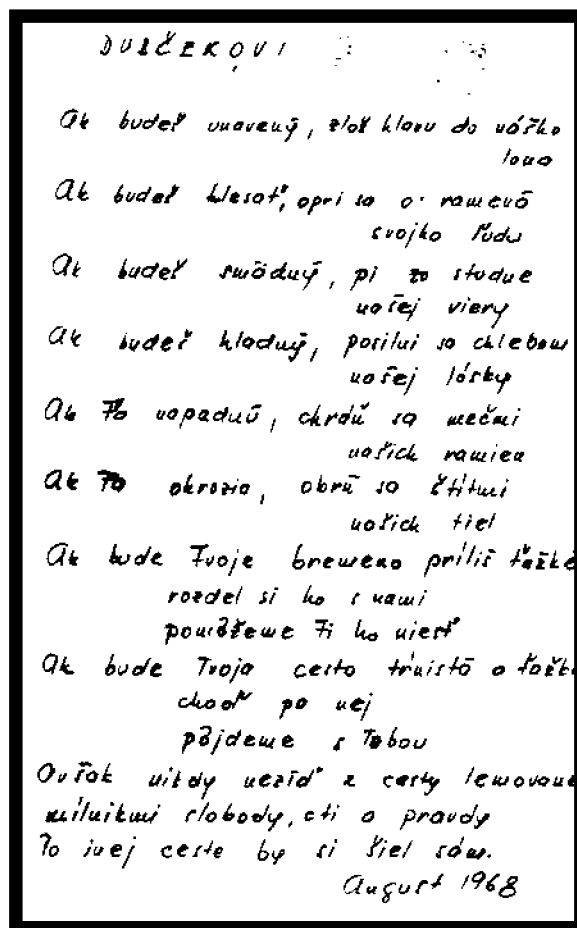 DUBČEKOVI
Ak budeš unavený, zlož hlavu do nášho
lona
Ak budeš klesať, opri sa o ramená
svojho ľudu
Ak budeš smädný, pi zo studne
našej viery
Ak budeš hladný, posilni sa chlebom
našej lásky
Ak Ťa napadnú, chráň sa mečmi
našich ramien
Ak Ťa okrožia, obrň sa štítmi
našich tiel
Ak bude Tvoje bremeno príliš ťažké
rozdel si ho s nami
pomôžeme Ti ho niesť
Ak bude Tvoja cesta tŕnistá a ťažká
choď po nej
pôjdeme s Tebou
Ovšak nikdy nezíď z cesty lemovanej
míľnikmi slobody, cti a pravdy
Po inej ceste by si šiel sám.
August 1968